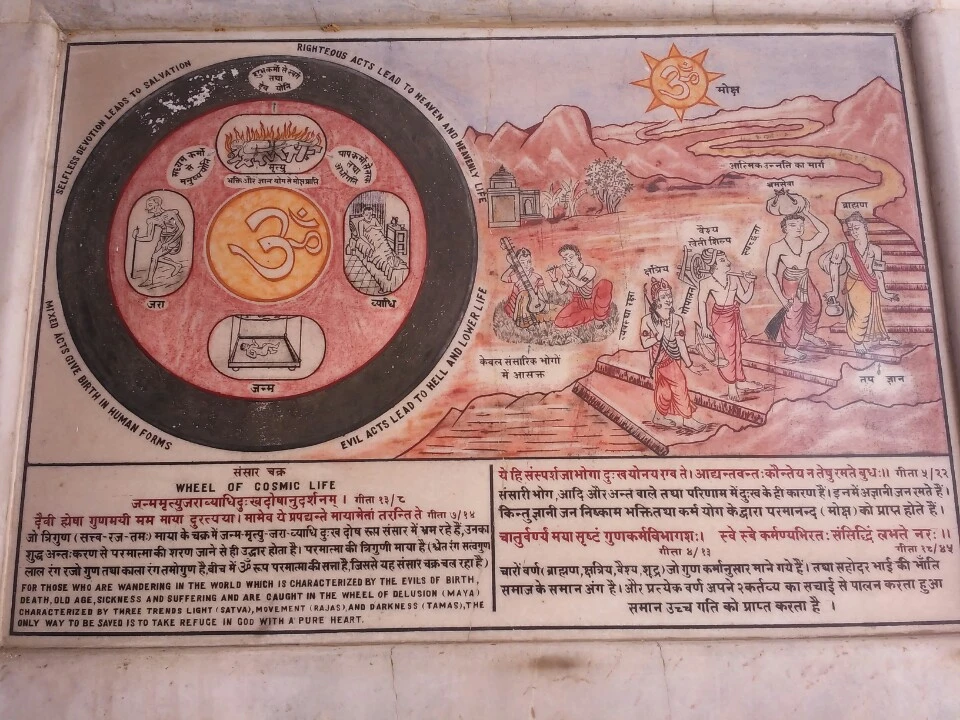 SELFLESS DEVOTION LEADS TO SALVATION
RIGHTEOUS ACTS LEAD TO HEAVEN AND HEAVENLY LIFE
MIXED ACTS GIVE BIRTH IN HUMAN FORMS
EVIL ACTS LEAD TO HELL AND LOWER LIFE
शुभकर्मों से स्वर्ग
तथा
देव योनि
मृत्यु
भक्ति और ज्ञान योग से मोक्षप्राप्ति
ॐ
जरा
व्याधि
जन्म
ॐ
मोक्ष
आत्मिक उन्नति का मार्ग
श्रमसेवा
ब्राह्मण
वैश्य
खेती शिल्प
गोपालन
क्षत्रिय
व्यवस्था रक्षा
केवल संसारिक भोगों
में आसक्त
तप ज्ञान
संसार चक्र
WHEEL OF COSMIC LIFE
जन्ममृत्युजराव्याधिदुःखदोषानुदर्शनम् । गीता १३/८
दैवी ह्येषा गुणमयी मम माया दुरत्यया। मामेव ये प्रपद्यन्ते मायामेतां तरन्ति ते गीता ७/१४
जो त्रिगुण (सत्त्व-रज-तमः) माया के चक्र में जन्म-मृत्यु-जरा-व्याधि दुःख दोष रूप संसार में भ्रम रहे हैं, उनका
शुद्ध अन्तःकरण से परमात्मा की शरण जाने से ही उद्धार होता है। परमात्मा की त्रिगुणी माया है (श्वेत रंग सत्वगुण
लाल रंग रजो गुण तथा काला रंग तमोगुण है, बीच में ॐ रूप परमात्मा की सत्ता है, जिससे यह संसार चक्र चल रहा है)
FOR THOSE WHO ARE WANDERING IN THE WORLD WHICH IS CHARACTERIZED BY THE EVILS OF BIRTH,
DEATH, OLD AGE, SICKNESS AND SUFFERING AND ARE CAUGHT IN THE WHEEL OF DELUSION (MAYA)
CHARACTERIZED BY THREE TRENDS LIGHT (SATVA), MOVEMENT (RAJAS), AND DARKNESS (TAMAS), THE
ONLY WAY TO BE SAVED IS TO TAKE REFUGE IN GOD WITH A PURE HEART.
ये हि संस्पर्शजा भोगा दुःखयोनय एव ते। आद्यन्तवन्तः कौन्तेय न तेषु रमते बुधः॥ गीता ५/२२
संसारी भोग, आदि और अन्त वाले तथा परिणाम में दुःख के ही कारण हैं। इनमें अज्ञानी जन रमते हैं।
किन्तु ज्ञानी जन निष्काम भक्ति तथा कर्म योग के द्वारा परमानन्द (मोक्ष) को प्राप्त होते हैं।
चातुर्वर्ण्यं मया सृष्टं गुणकर्मविभागशः। स्वे स्वे कर्मण्यभिरतः संसिद्धिं लभते नरः।।
गीता ४/१३ गीता १८/४५
चारों वर्ण (ब्राह्मण, क्षत्रिय, वैश्य, शूद्र) जो गुण कर्मानुसार माने गये हैं। तथा सहोदर भाई की भाँति
समाज के समान अंग है। और प्रत्येक वर्ण अपने २ कर्तव्य का सचाई से पालन करता हुआ
समान उच्च गति को प्राप्त करता है ।